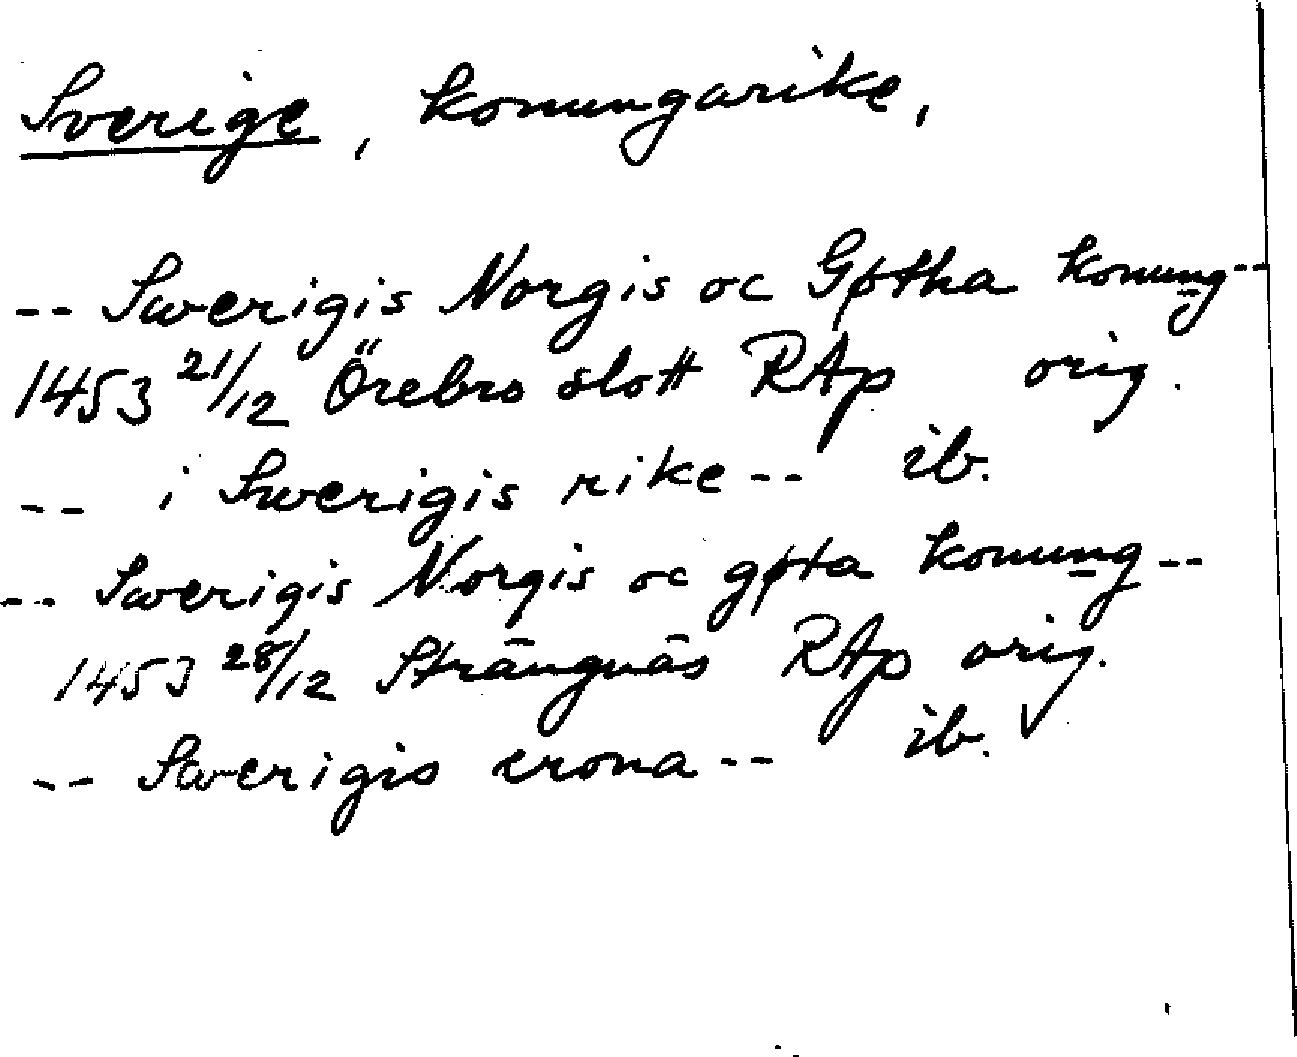 Sverige, konungarike,
-- Swerigis Norgis oc Gøtha konung--
1453 21/12 Örebro slott RAp orig.
-- i Swerigis rike -- ib.
-- Swerigis Norgis oc gøta konung --
1453 28/12 Strängnäs RAp orig.
-- Swerigis crona -- ib.